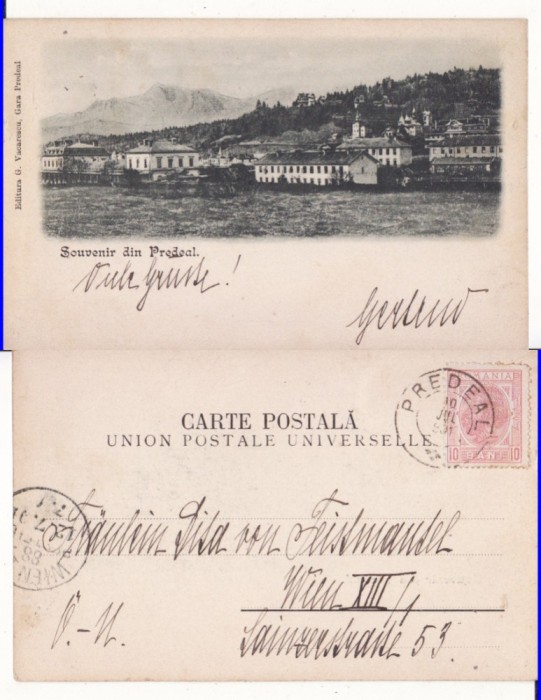 Editura G. Vacarescu, Gara Predeal
Souvenir din Predeal.
Viele Grüsse!
Gertrud
PREDEAL
10
JUL
ROMANIA
10 BANI 10
CARTE POSTALĂ
UNION POSTALE UNIVERSELLE
WIEN
Fräulein Disa von Feistmantel
Wien XIII/1
Ö.-U. Lainzerstraße 53.